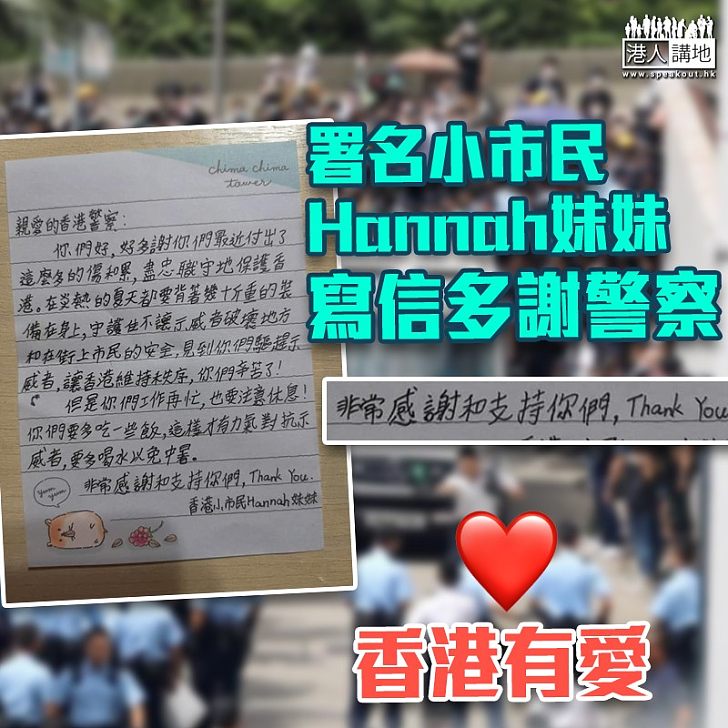 港人講地
www.speakout.hk
署名小市民
Hannah妹妹
寫信多謝警察
chima chima
tawer
親愛的香港警察：
你們好，好多謝你們最近付出了
這麼多的傷和累，盡忠職守地保護香
港。在炎熱的夏天都要背著幾十斤重的裝
備在身上，守護住不讓示威者破壞地方
和在街上市民的安全，見到你們驅趕示
威者，讓香港維持秩序，你們辛苦了！
但是你們工作再忙，也要注意休息！
你們要多吃一些飯，這樣才有力氣對抗示
威者，要多喝水以免中暑。
非常感謝和支持你們，Thank You.
香港小市民Hannah妹妹
Yum Yum
非常感謝和支持你們，Thank You
香港有愛